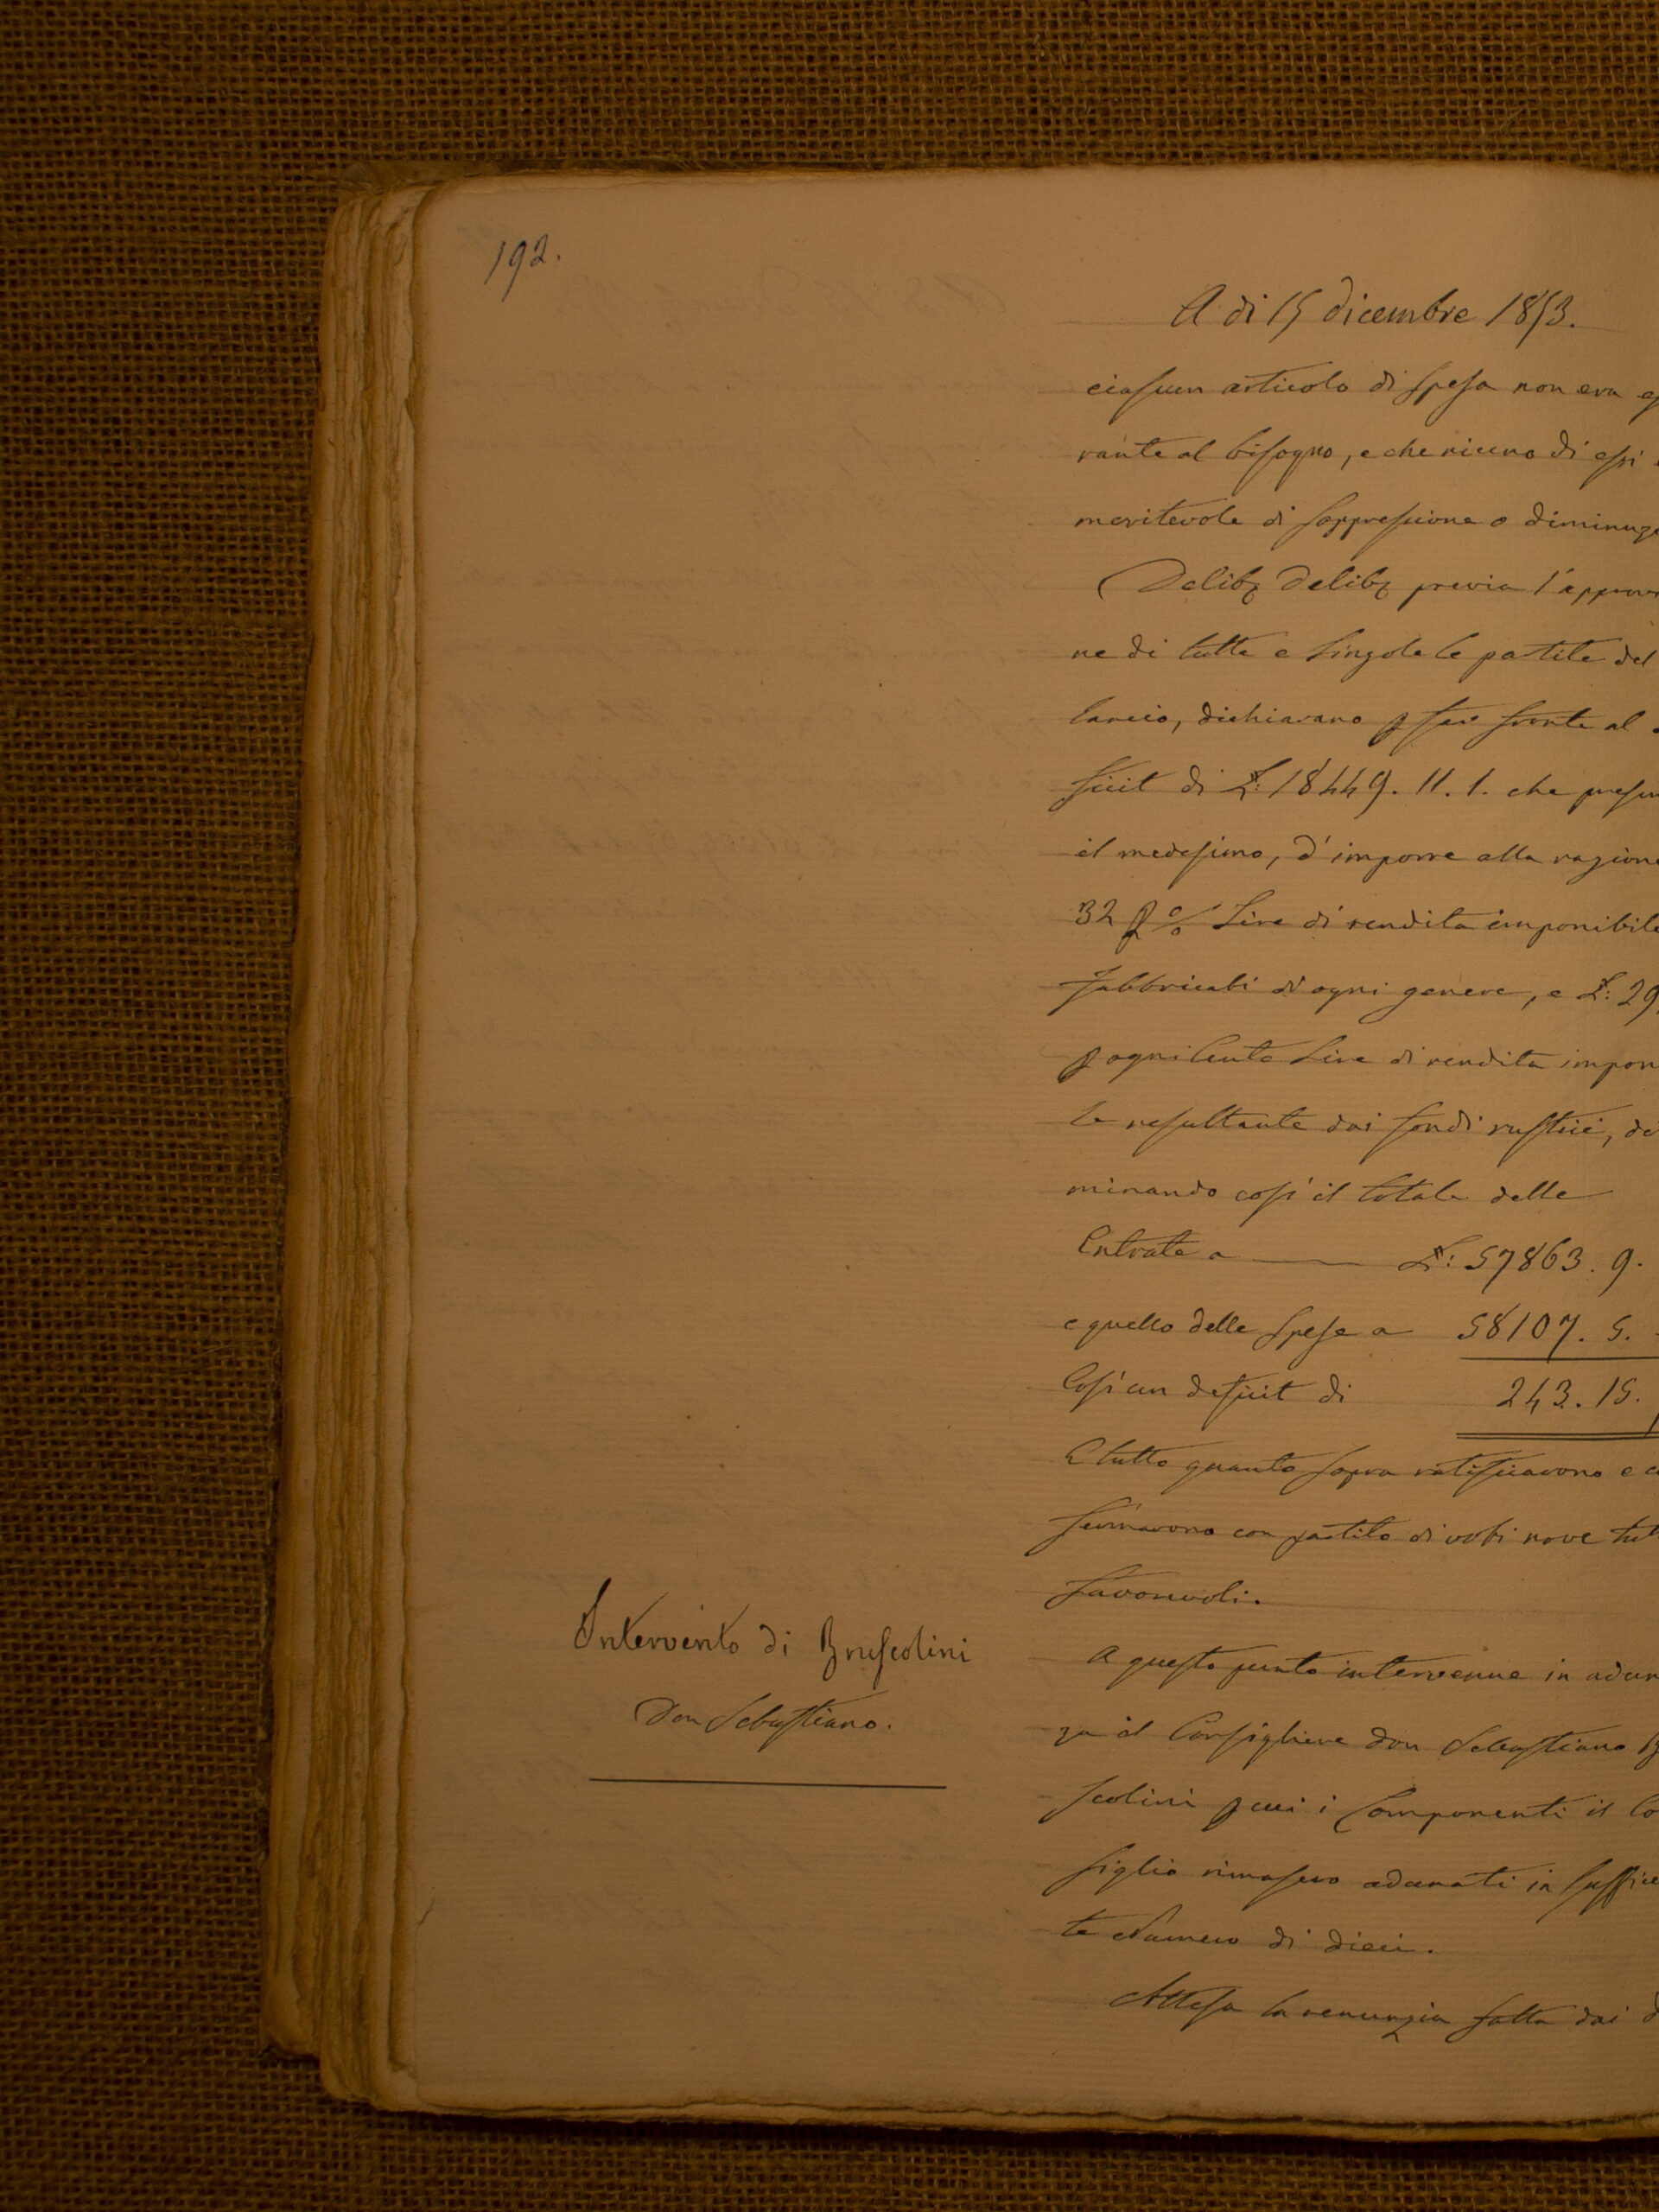 192.
A di 15 dicembre 1853.
ciascun articolo di spesa non era e
rante al bisogno, e che niuno di essi
meritevole di soppressione o diminuz
Delib: Delib: previa l'approv
ne di tutte e singole le partite del
lancio, dichiarano p far fronte al
ficit di £: 18449. 11. 1. che presen
il medesimo, d'imporre alla ragione
32 p % Lire di rendita imponibile
Fabbricati di ogni genere, e £: 29
p ogni Cento Lire di rendita impon
le resultante dai fondi rustici, de
minando così il totale delle
Entrate a £: 57863. 9.
e quello delle Spese a 58107. 5.
Così un deficit di 243. 15.
E tutto quanto sopra ratificarono e co
fermarono con partito di voti nove tut
favorevoli.
Intervento di Bruscolini
Don Sebastiano.
A questo punto intervenne in adun
za il Consigliere don Sebastiano B
scolini p cui i Componenti il Co
siglio rimasero adunati in suffic
te Numero di dieci.
Attesa la renunzia fatta dai d